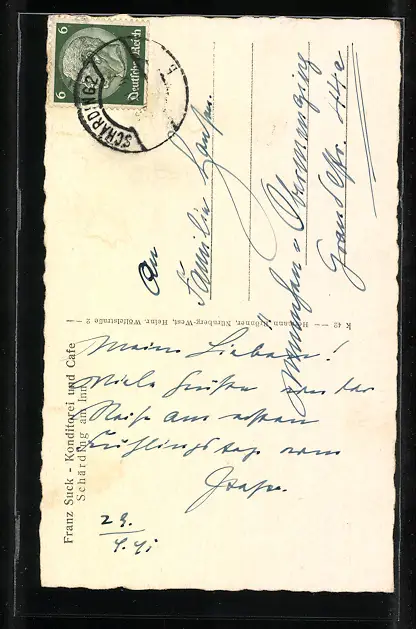 Franz Suck - Konditorei und Cafe
Schärding am Inn
Meine Lieben!
Viele Grüße von der
Reise am ersten
Frühlingstag vom
29.
4. 41
K 42 — Hermann Brunner, Nürnberg-West, Heinr. Wölfelstraße 2 —
An
Familie
München - Obermenzing
44c
Deutsches Reich
6
6
SCHÄRDING 2